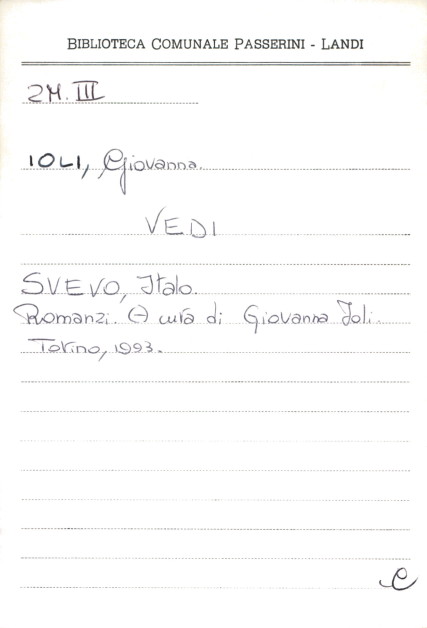 BIBLIOTECA COMUNALE PASSERINI - LANDI
2M. III
IOLI, Giovanna.
VEDI
SVEVO, Italo.
Romanzi. A cura di Giovanna Ioli.
Torino, 1993.
C